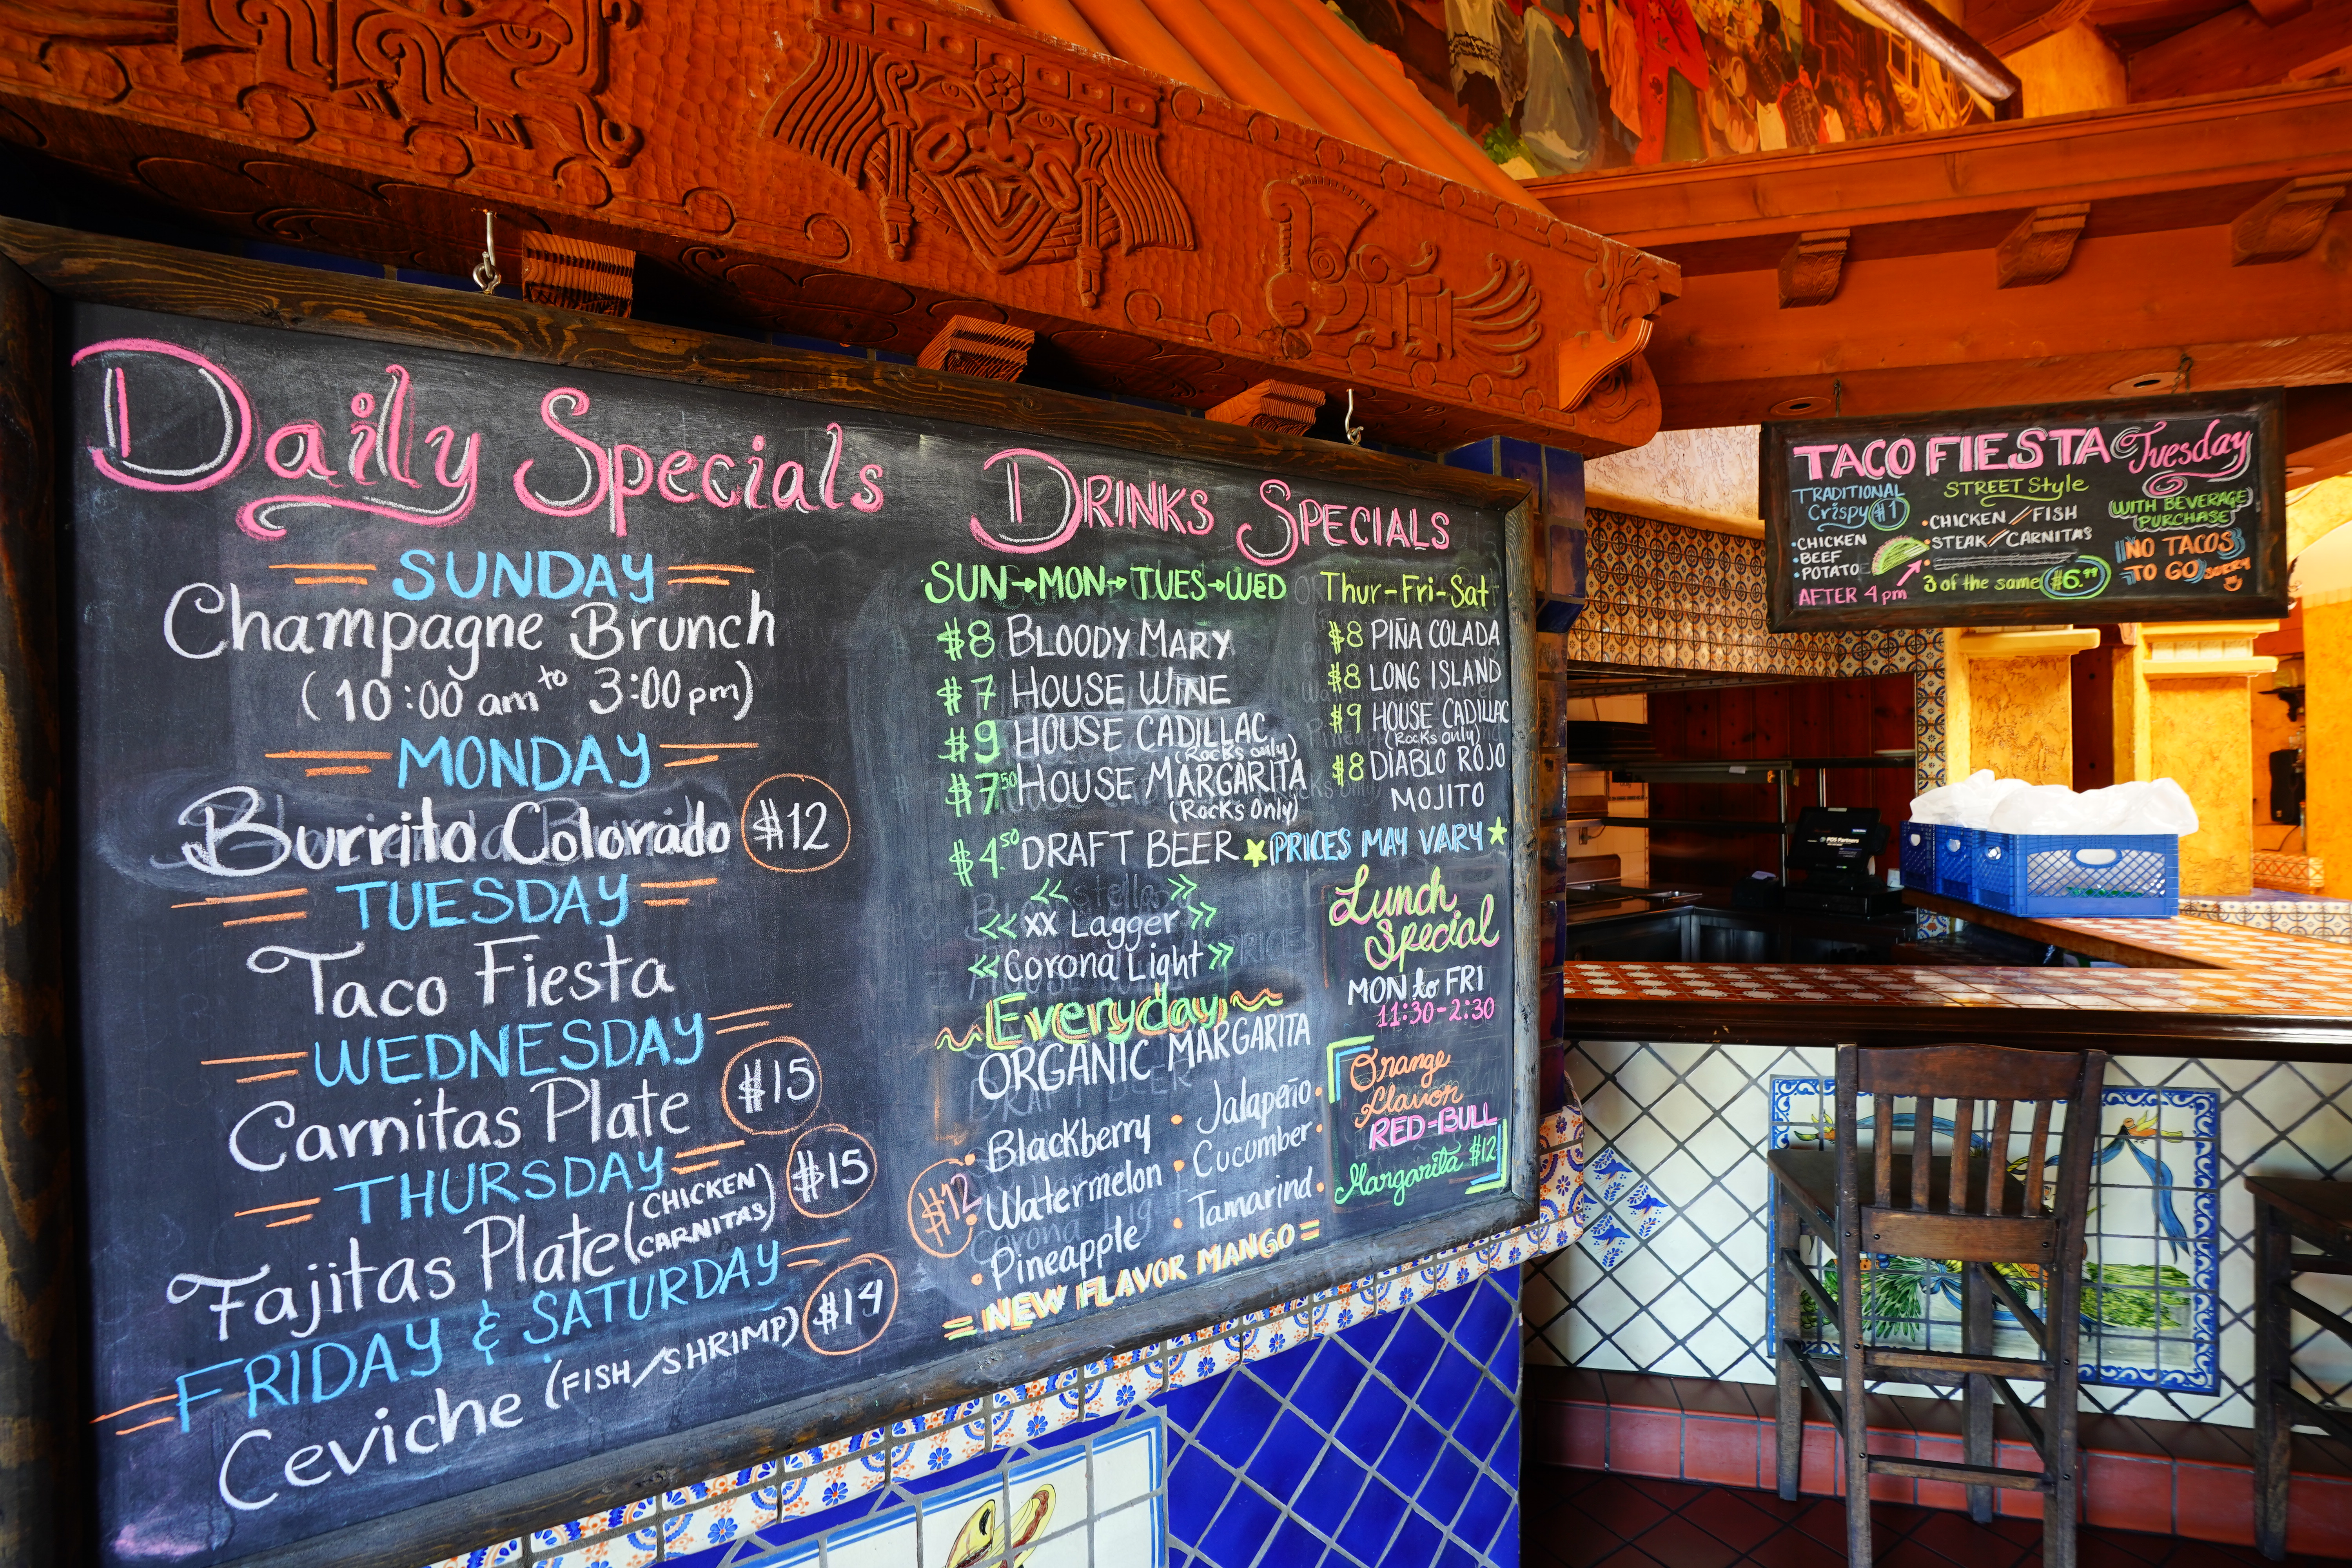 Daily Specials
SUNDAY
Champagne Brunch
(10:00 am to 3:00 pm)
MONDAY
Burrito Colorado $12
TUESDAY
Taco Fiesta
WEDNESDAY
Carnitas Plate $15
THURSDAY
Fajitas Plate (CHICKEN CARNITAS) $15
FRIDAY & SATURDAY
Ceviche (FISH/SHRIMP) $14
DRINKS SPECIALS
SUN→MON→TUES→WED
$8 BLOODY MARY
$7 HOUSE WINE
$9 HOUSE CADILLAC
(Rocks only)
$7.50 HOUSE MARGARITA
(Rocks Only)
$4.50 DRAFT BEER
<< stella >>
<< XX Lagger >>
<< Corona Light >>
Everyday
ORGANIC MARGARITA
$12
• Blackberry • Jalapeño •
• Watermelon • Cucumber •
• Pineapple • Tamarind •
= NEW FLAVOR MANGO =
Thur-Fri-Sat
$8 PIÑA COLADA
$8 LONG ISLAND
$9 HOUSE CADILLAC
(Rocks only)
$8 DIABLO ROJO
MOJITO
★ PRICES MAY VARY ★
Lunch
Special
MON to FRI
11:30-2:30
Orange
Flavor
RED-BULL
Margarita $12
TACO FIESTA Tuesday
TRADITIONAL
Crispy $1
• CHICKEN
BEEF
• POTATO
AFTER 4pm
STREET Style
• CHICKEN / FISH
• STEAK // CARNITAS
3 of the same $6.99
(WITH BEVERAGE
PURCHASE)
NO TACOS
TO GO SORRY